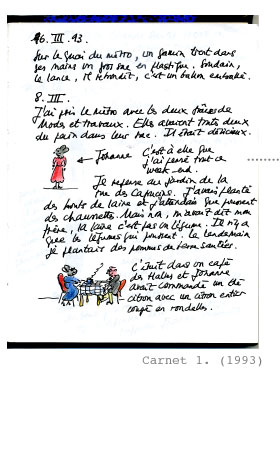 16.III.93.
Sur le quai du métro, un gamin tient dans
ses mains un gros sac en plastique. Soudain,
le lance, il rebondit, c'est un ballon emballé.
8.III.
J'ai pris le métro avec les deux frères de
Modes et travaux. Elles avaient toutes deux
du pain dans leur sac. Il était délicieux.
Johanne
C'est à elle que
j'ai pensé tout ce
week-end.
Je repense au jardin de la
rue des Capucins. J'avais planté
des bouts de laine et j'attendais que poussent
des chaussettes. Mais non, m'avait dit mon
frère, la laine c'est pas un légume. Il n'y a
que les légumes qui poussent. Le lendemain
je plantais des pommes de terre sautées.
C'était dans un café
des Halles et Johanne
avait commandé un thé
citron avec un citron entier
coupé en rondelles.
Carnet 1. (1993)